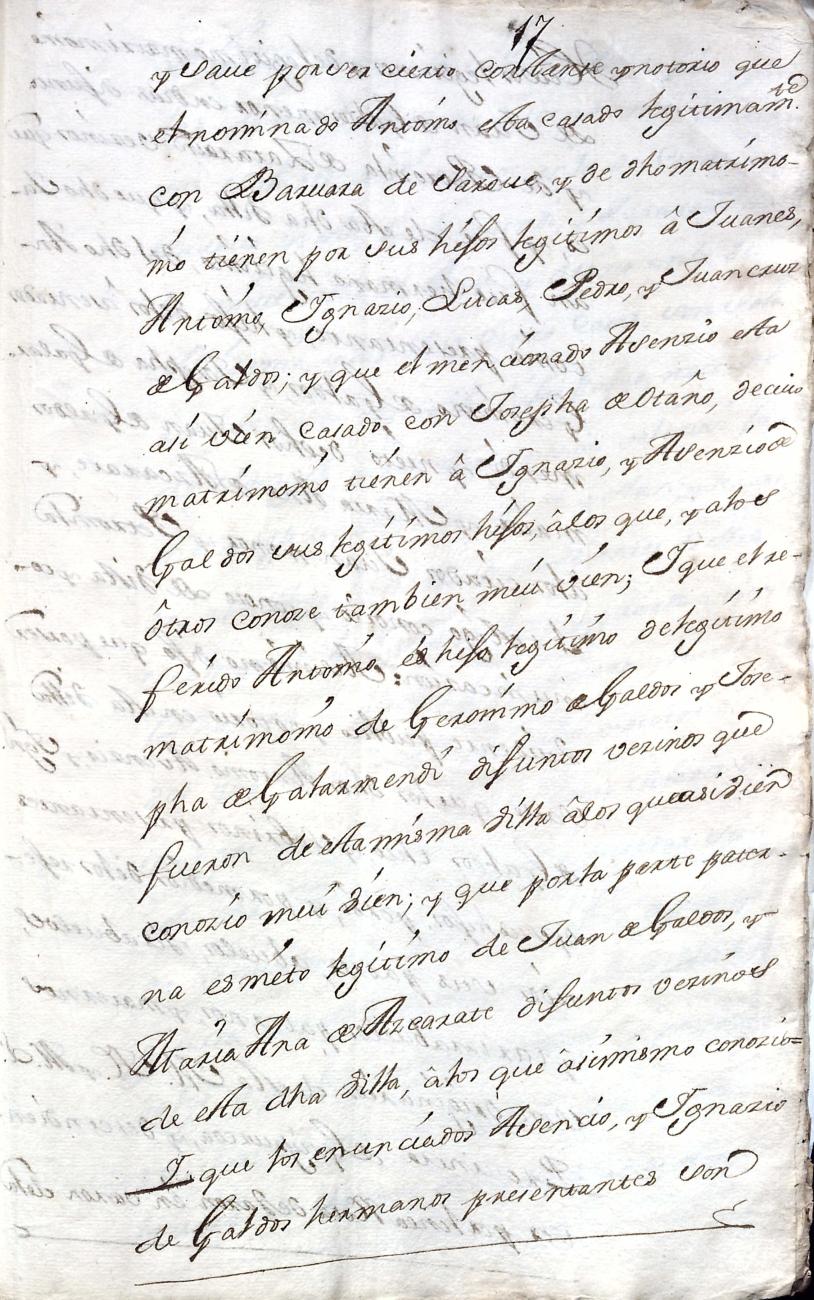 17
y save por ser cierto constante y notorio que
el nominado Antonio esta casado legitimamte
con Barvara de Sarove, y de dho matrimo-
nio tienen por sus hijos legitimos â Juanes,
Antonio, Ignazio, Lucas, Pedro, y Juan cruz
de Galdos; y que el mencionado Asenzio esta
asi vien casado con Josepha de Otaño, de cuio
matrimonio tienen â Ignazio, y Asenzio de
Galdos sus legitimos hijos, âlos que, y alos
ôtros conoze tambien mui vien; Y que el re-
ferido Antonio es hijo legitimo de legitimo
matrimonio de Geronimo de Galdos y Jose-
pha de Galarmendi difuntos vezinos que
fueron de esta misma villa âlos que asi vien
conozio mui vien; y que por la parte pater-
na es nieto legitimo de Juan de Galdos, y
Maria Ana de Azcarate difuntos vezinos
de esta dha villa, âlos que âsimismo conozio=
Y que los enunciados Asencio, y Ignazio
de Galdos hermanos presentantes son